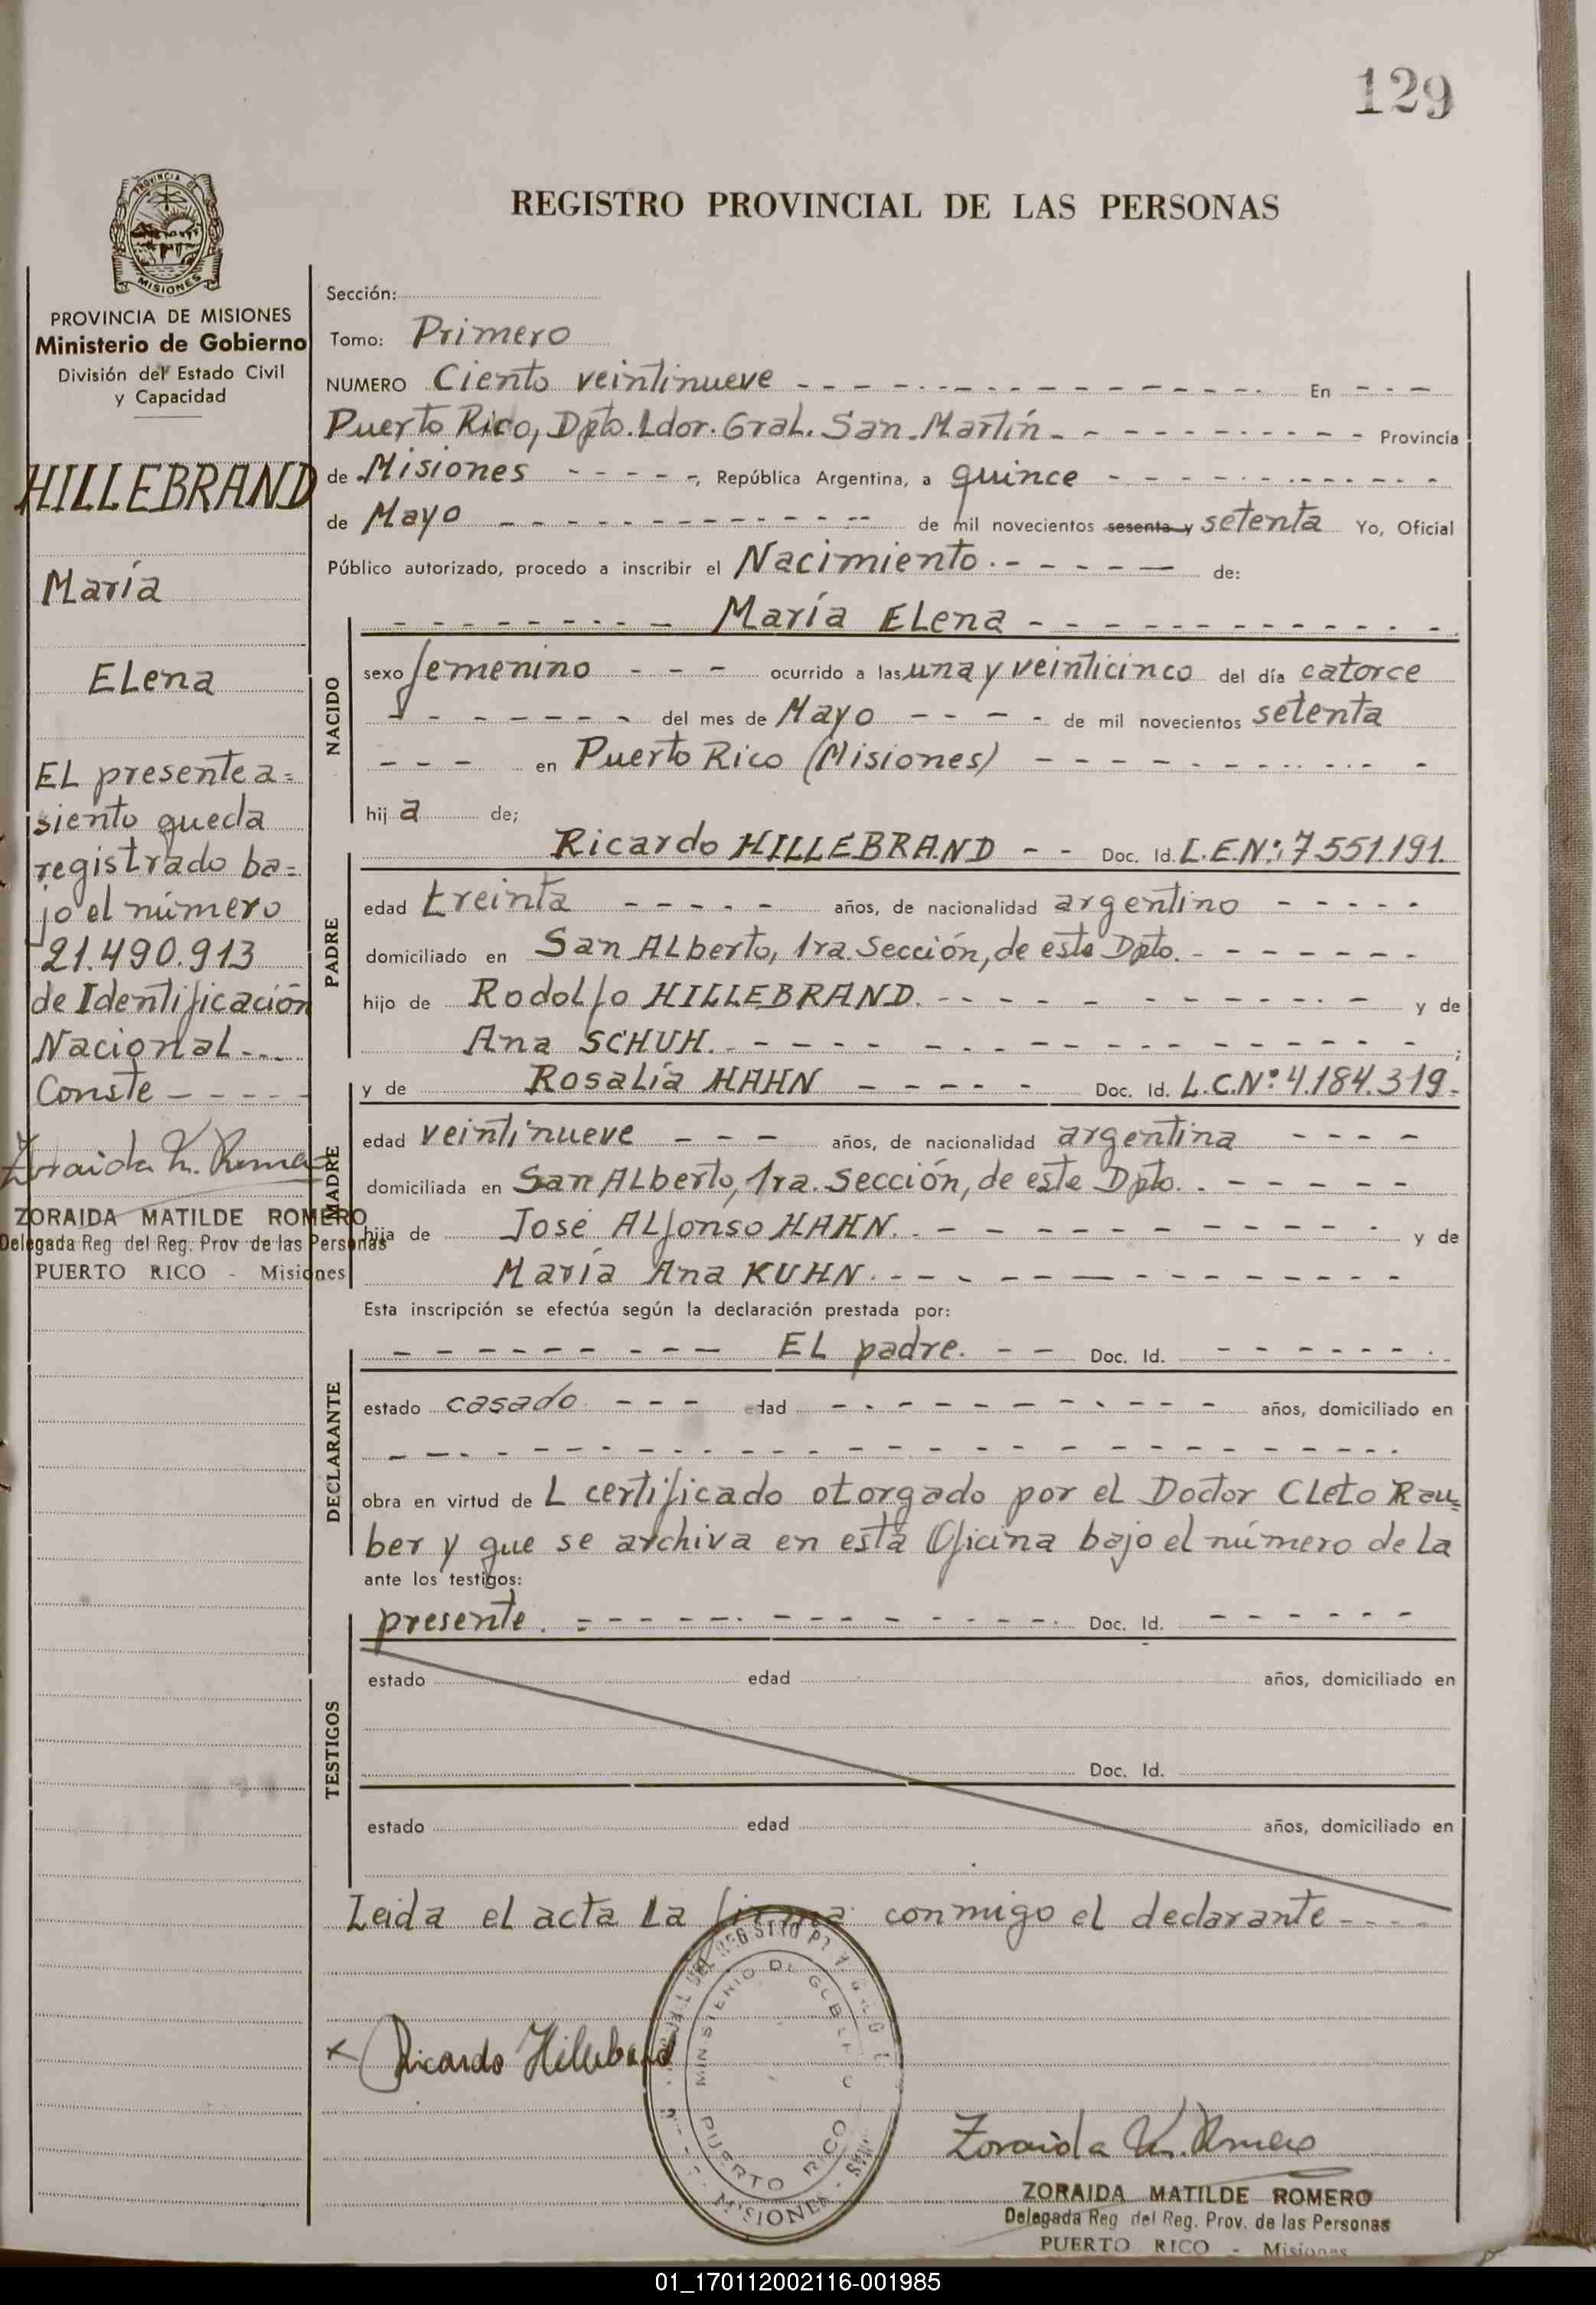 129
REGISTRO PROVINCIAL DE LAS PERSONAS
PROVINCIA DE
MISIONES
PROVINCIA DE MISIONES
Ministerio de Gobierno
División del Estado Civil
y Capacidad
HILLEBRAND
María
Elena
El presente a=
siento queda
registrado ba=
jo el número
21.490.913
de Identificación
Nacional
Conste
Zoraida M. Romero
ZORAIDA MATILDE ROMERO
Delegada Reg del Reg. Prov de las Personas
PUERTO RICO - Misiones
Sección:
Tomo: Primero
NUMERO Ciento veintinueve En
Puerto Rico, Dpto. Ldor. Gral. San Martín Provincia
de Misiones, República Argentina, a quince
de Mayo de mil novecientos sesenta y setenta Yo, Oficial
Público autorizado, procedo a inscribir el Nacimiento. de:
María Elena
NACIDO
sexo femenino ocurrido a las una y veinticinco del día catorce
del mes de Mayo de mil novecientos setenta
en Puerto Rico (Misiones)
hij a de;
PADRE
Ricardo HILLEBRAND Doc. Id. L.E.Nº: 7551.191.
edad treinta años, de nacionalidad argentino
domiciliado en San Alberto, 1ra. Sección, de este Dpto.
hijo de Rodolfo HILLEBRAND. y de
Ana SCHUH. ;
MADRE
y de Rosalía HAHN Doc. Id. L.C.Nº 4.184.319.
edad veintinueve años, de nacionalidad argentina
domiciliada en San Alberto, 1ra. Sección, de este Dpto.
hija de José Alfonso HAHN. y de
María Ana KUHN.
Esta inscripción se efectúa según la declaración prestada por:
DECLARANTE
El padre. Doc. Id.
estado casado edad años, domiciliado en
obra en virtud de l certificado otorgado por el Doctor Cleto Rau=
ber y que se archiva en esta Oficina bajo el número de la
ante los testigos:
presente. Doc. Id.
TESTIGOS
estado edad años, domiciliado en
Doc. Id.
estado edad años, domiciliado en
Leida el acta la firma conmigo el declarante
x Ricardo Hillebrand
MINISTERIO DE GOBIERNO
PUERTO RICO
MISIONES
Zoraida M. Romero
ZORAIDA MATILDE ROMERO
Delegada Reg del Reg. Prov. de las Personas
PUERTO RICO - Misiones
01_170112002116-001985